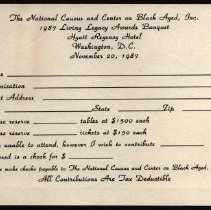 The National Caucus and Center on Black Aged, Inc.
1987 Living Legacy Awards Banquet
Hyatt Regency Hotel
Washington, D.C.
November 20, 1987
State Zip
reserve tables at $1500 each
reserve tickets at $150 each
unable to attend, however I wish to contribute
is a check for $
make checks payable to The National Caucus and Center on Black Aged,
All Contributions Are Tax Deductible